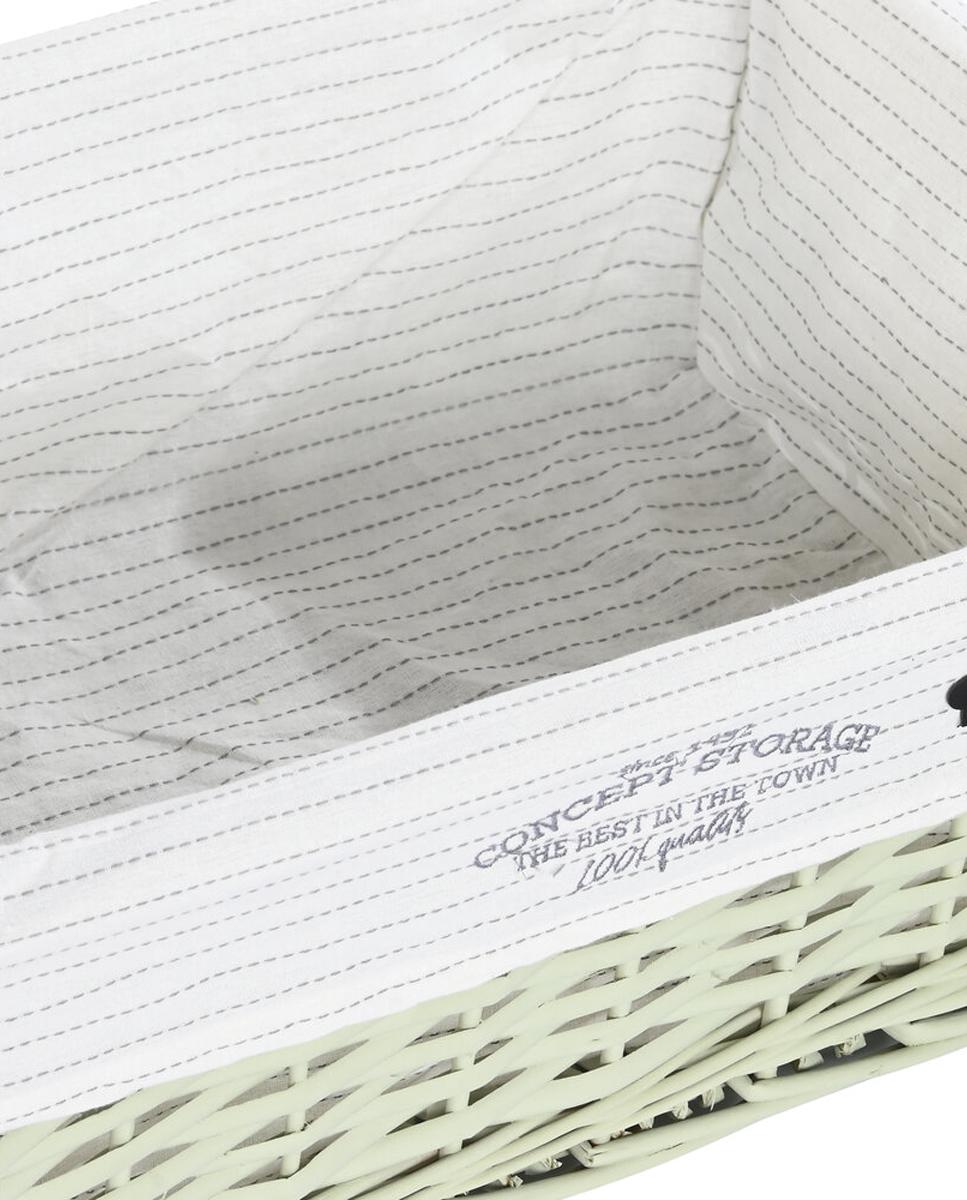 since 1492
CONCEPT STORAGE
THE BEST IN THE TOWN
100% quality